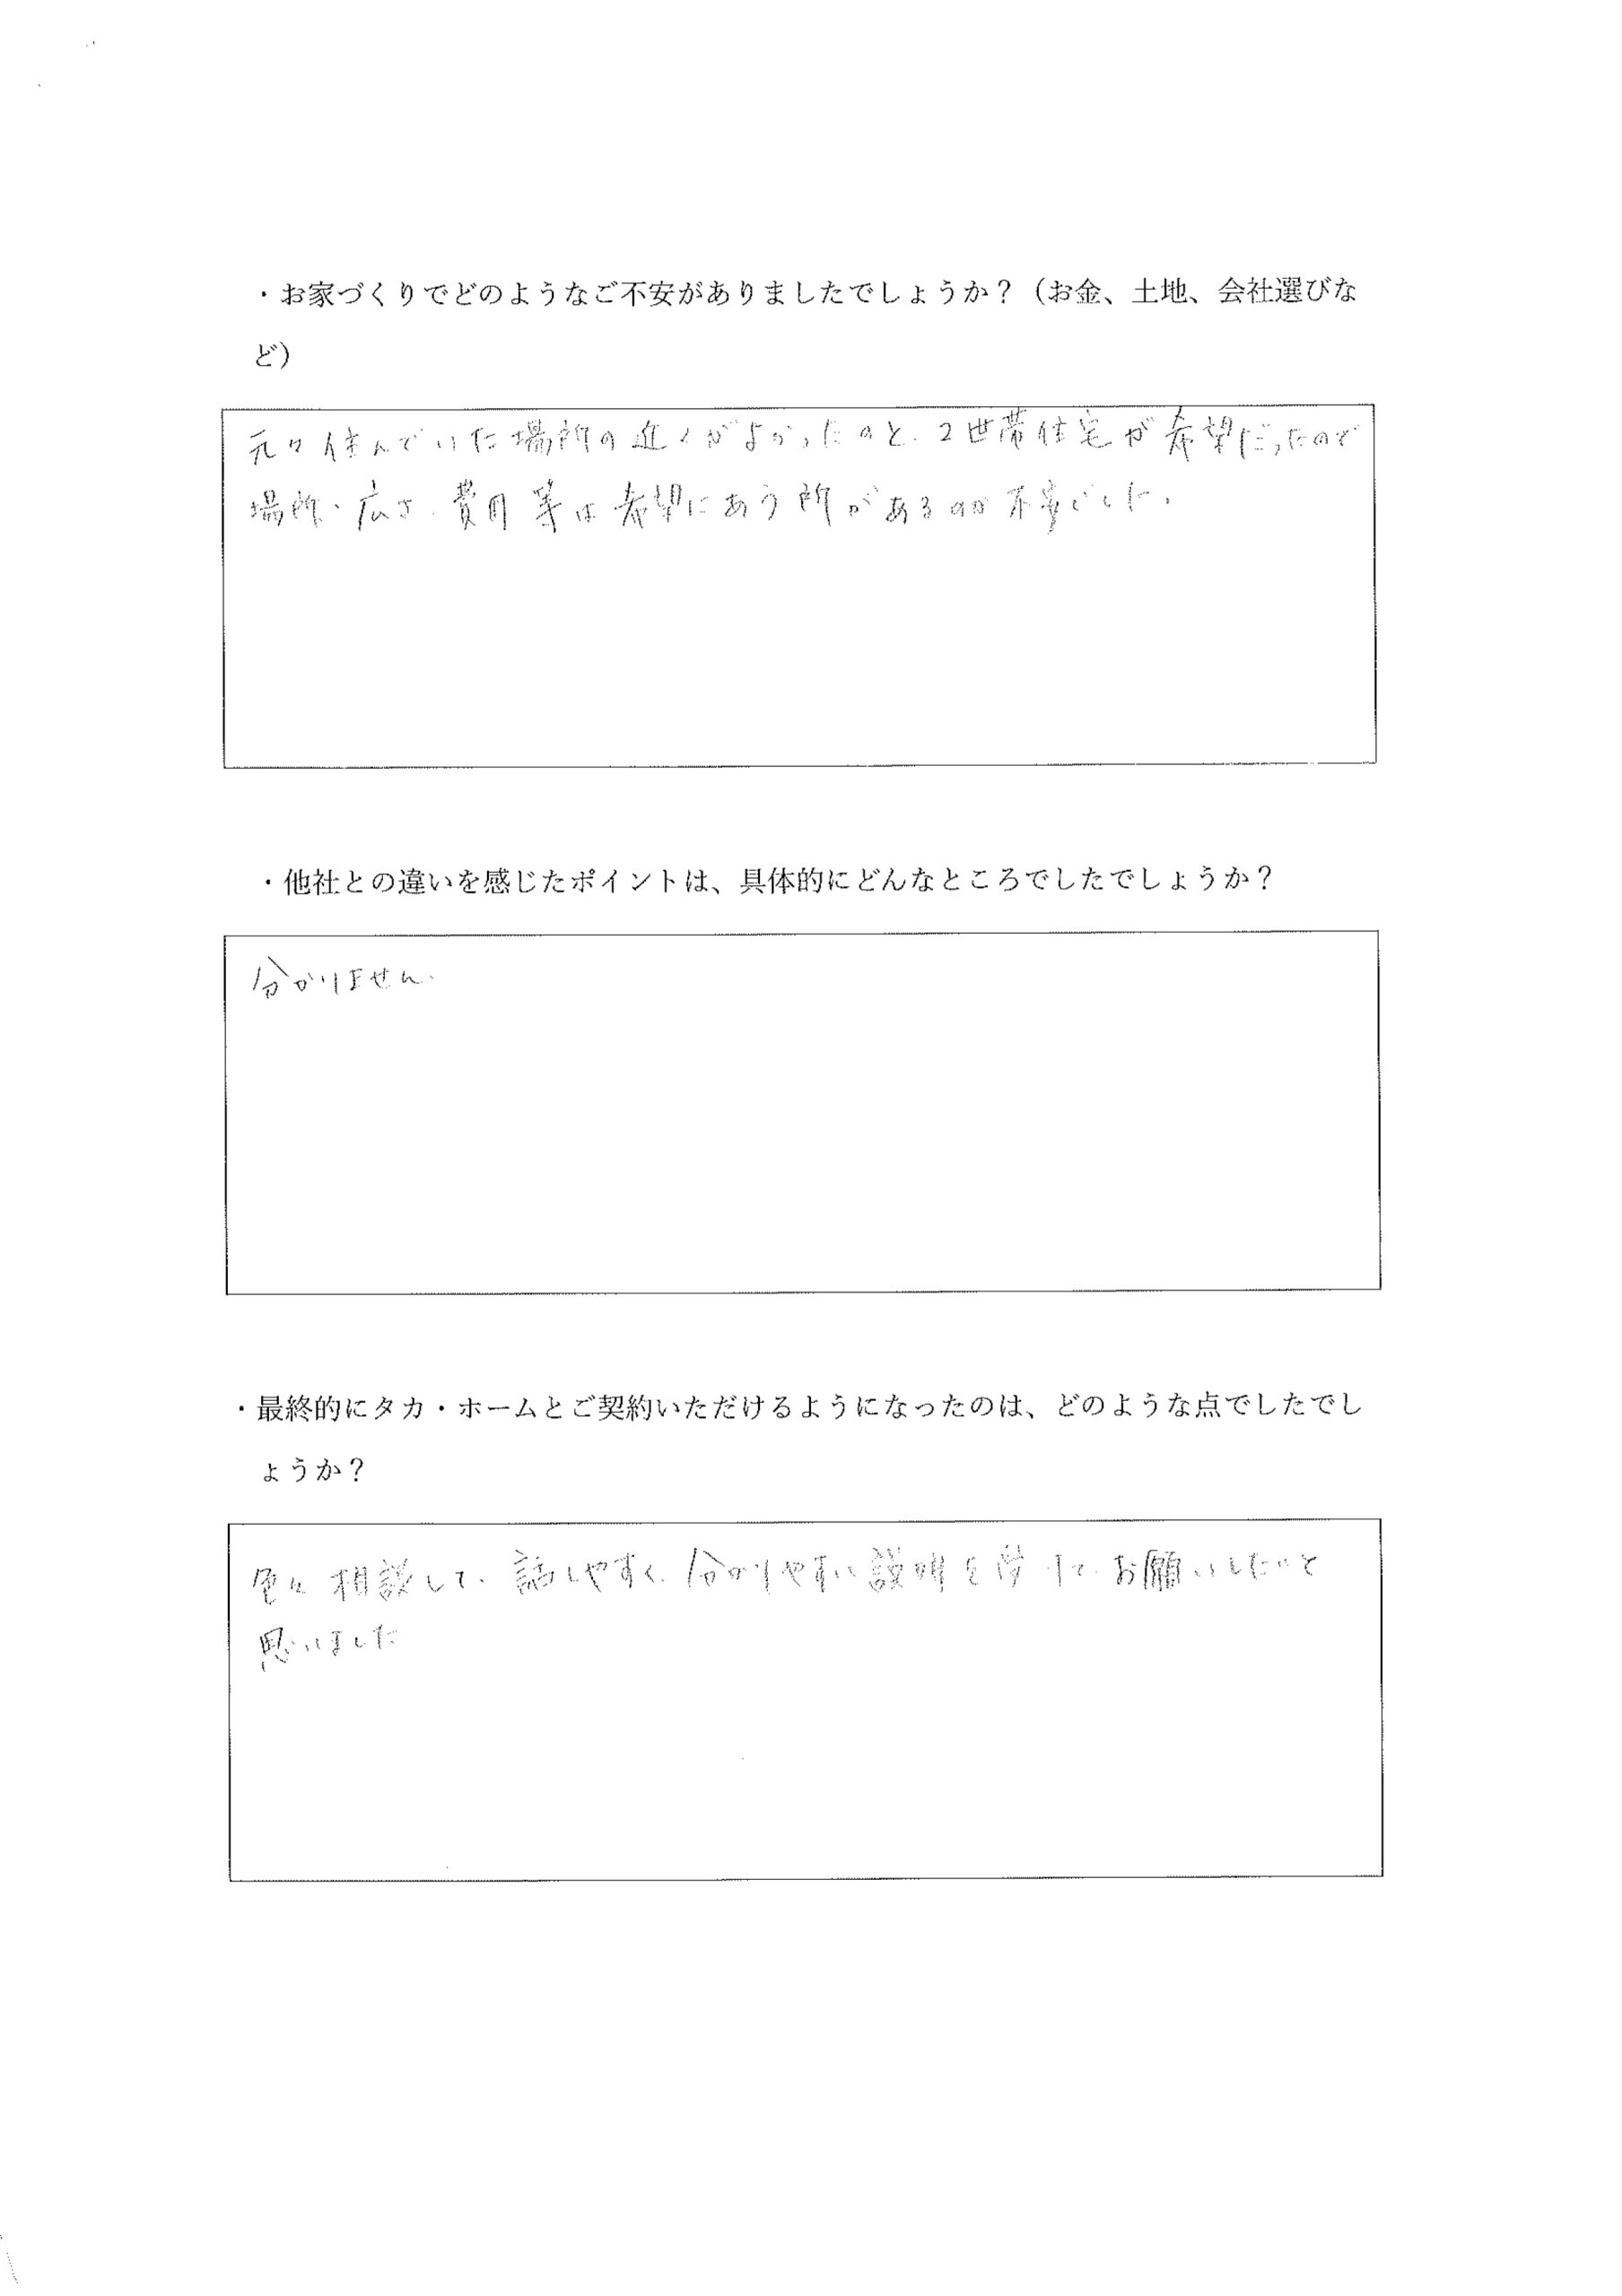 ・お家づくりでどのようなご不安がありましたでしょうか？（お金、土地、会社選びな
ど）
元々住んでいた場所の近くがよかったのと、2世帯住宅が希望だったので
場所・広さ・費用等は希望にあう所があるのか不安でした。
・他社との違いを感じたポイントは、具体的にどんなところでしたでしょうか？
分かりません。
・最終的にタカ・ホームとご契約いただけるようになったのは、どのような点でしたでし
ょうか？
色々相談して、話しやすく、分かりやすい説明を受けて、お願いしたいと
思いました